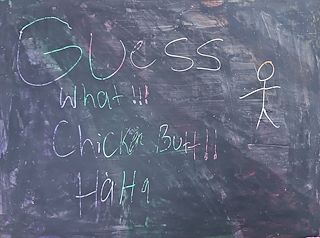 Guess
What!!!
Chicken Butt!!
HaHa